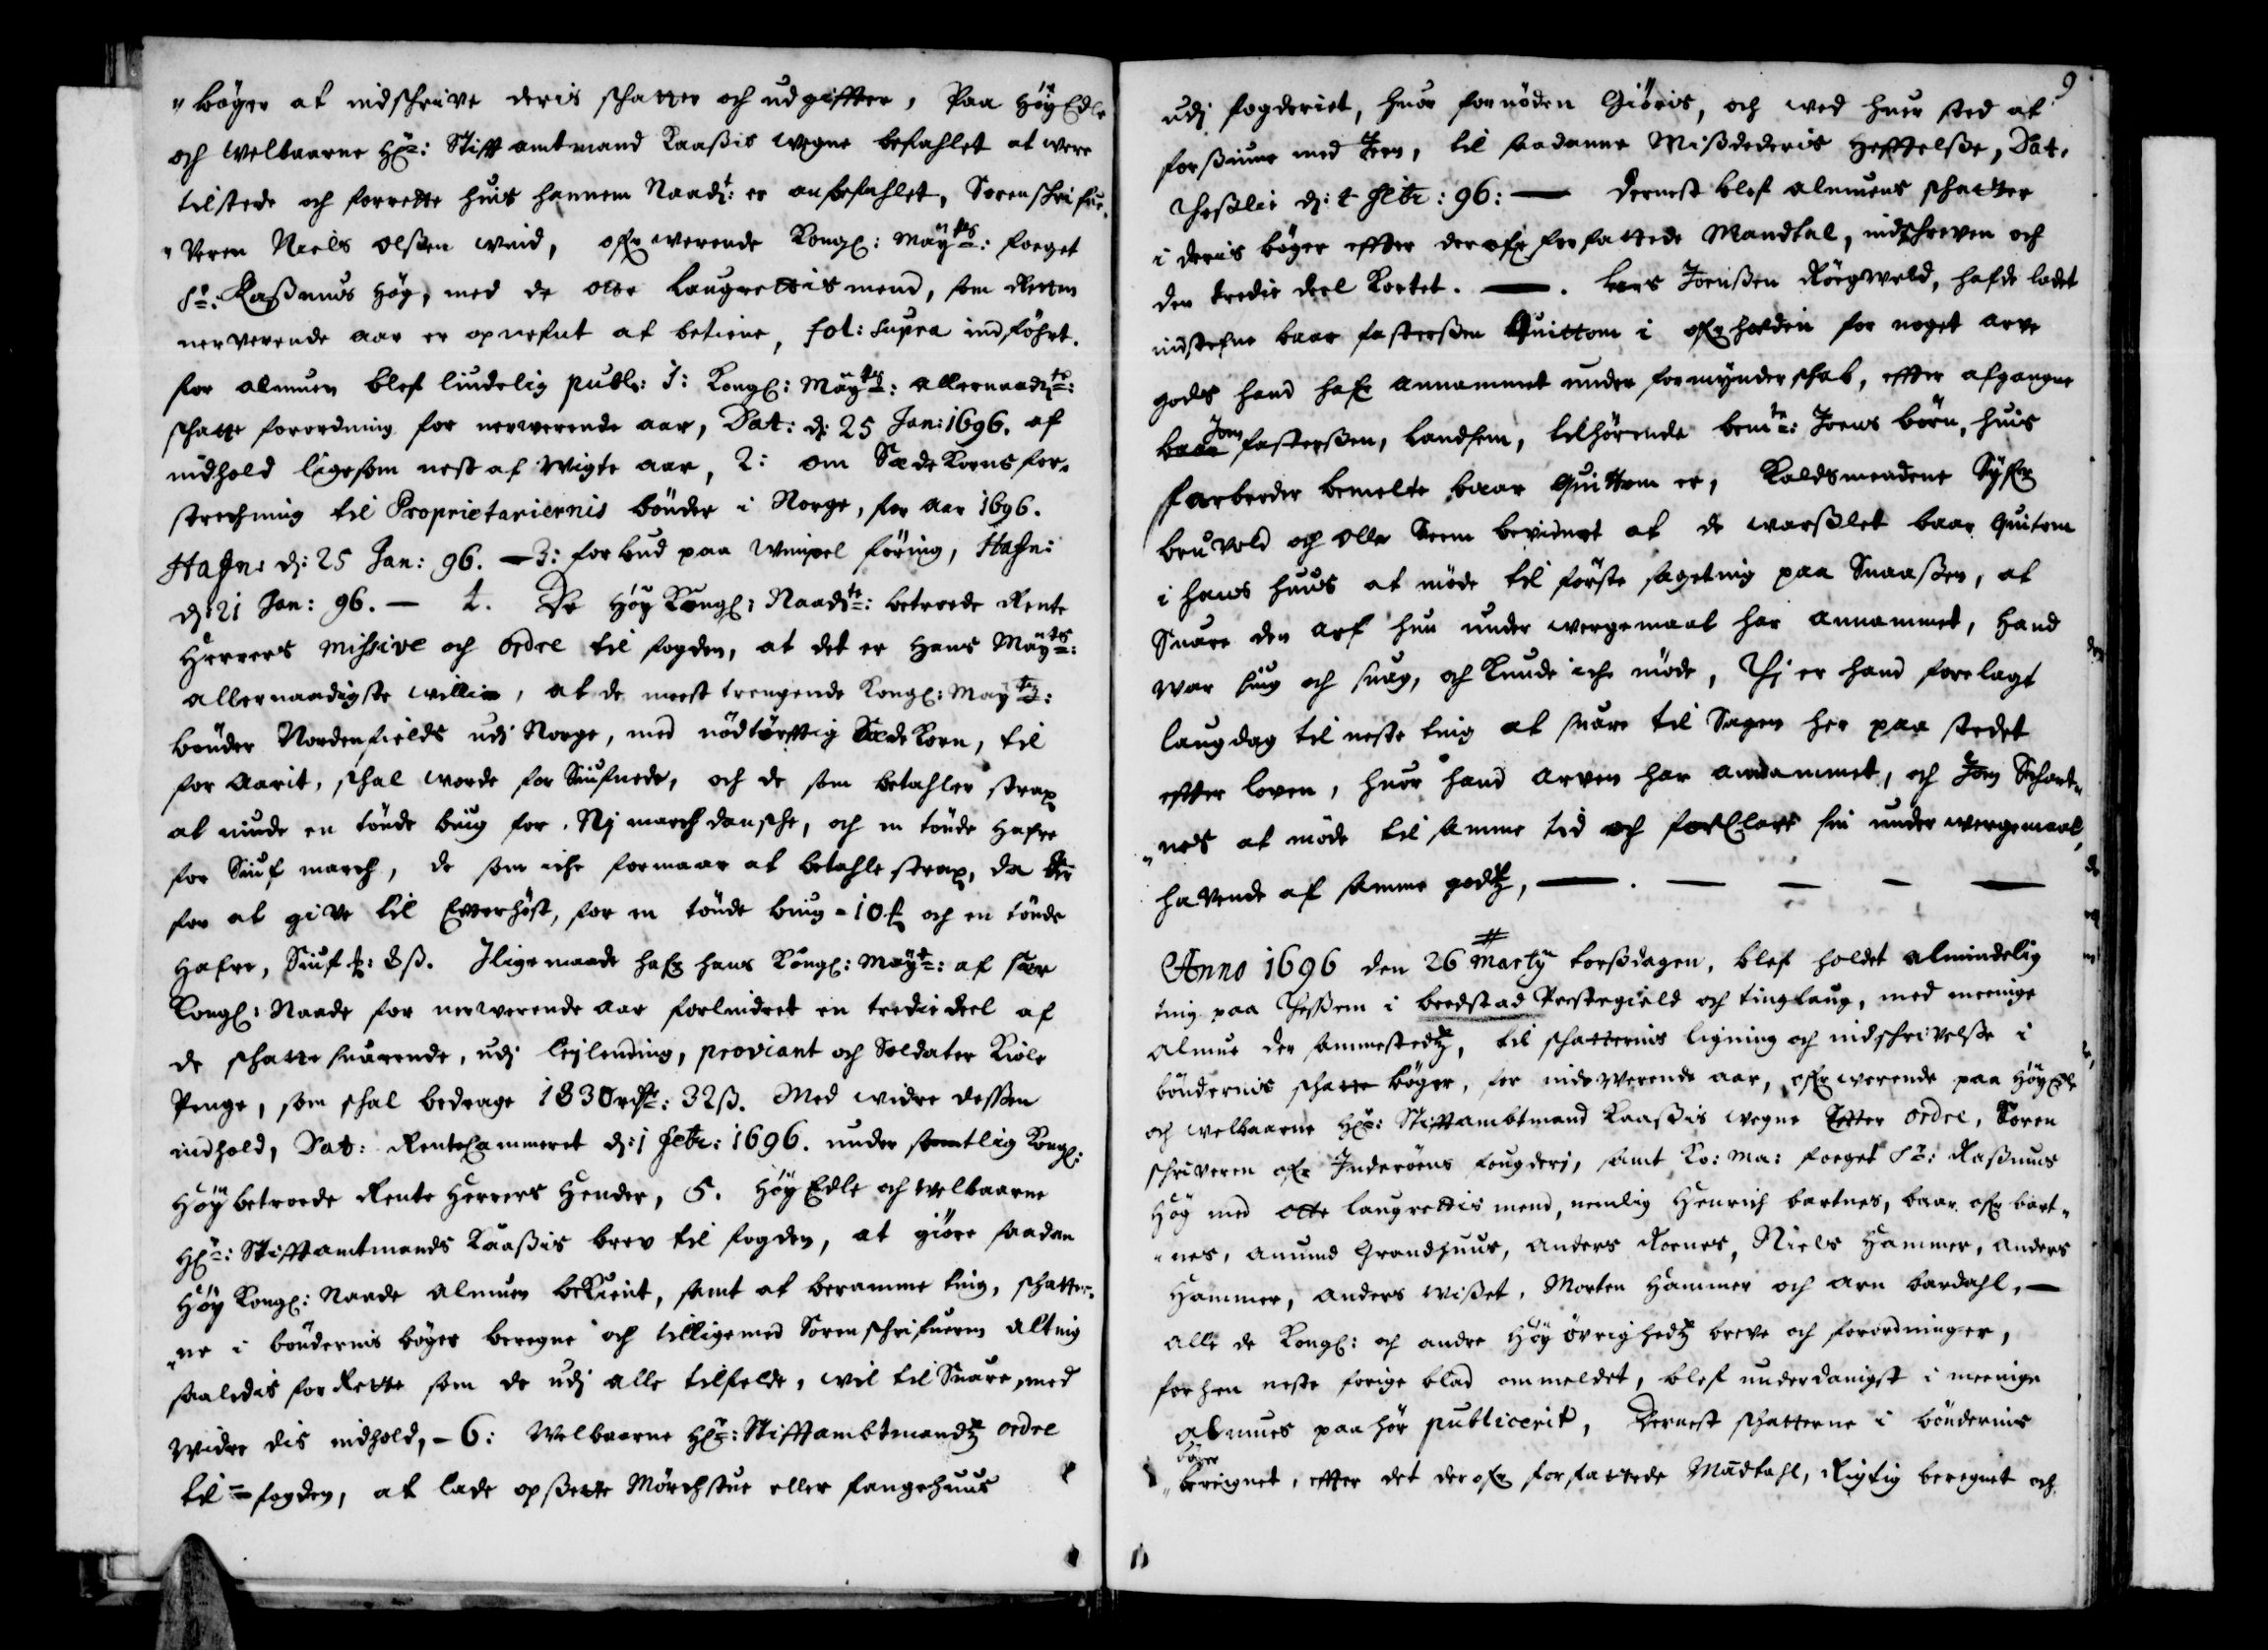 "bøger at indschrive deris schatter och udgiffter, Paa HøyEdle
och welbaarne Hr: Stiftamtmand Kaaßis wegne befahlet at were
tilstede och forrette huis hannem Naadt: er anbefahlet, Sorenschrifue-
"Veren Niels Olßen wiid, ofuerwerende Kongl: Mayts: foeget
Sr: Raßmus Høg, med de otte Laugrettismend, som Retten
nerverende aar er opnefnt at betiene, fol: supra indføhrt.
for almuen blef liudelig publ: 1: Kongl: Mayts: allernaadte:
schatte forordning for nerverende aar, Dat: d: 25 Jan: 1696. af
indhold ligesom nest afwigte aar, 2: om Sæde Korns for-
strechning til Proprietariernis bønder i Norge, for aar 1696.
Hafn: d: 25 Jan: 96. — 3: forbud paa wimpel føring, Hafn:
d: 21 Jan: 96. — 4. De Høy Kongl: Naadte: betroede Rente
Herrers missive och ordre til fogden, at det er Hans Mayts:
allernaadigste willie, at de meest trengende Kongl: Mayts:
bønder Nordenfields udj Norge, med nødtørftig Sæde Korn, til
for Aarit, schal worde forSiufnede, och de som betahler strax
at niude en tønde biug for Nj march dansche, och en tønde Hafre
for Siuf march, de som iche formaar at betahle strax, da der
for at give til Efterhøst, for en tønde biug - 10 ß och en tønde
Hafre, Siuf : 8 ß. Jligemaade hafuer hans Kongl: Mayt: af sær
Kongl: Naade for nerwerende aar forlindret en tredie deel af
de schatte suarende, udj leilending, proviant och Soldater Kiole
Penge, som schal bedrage 1830 rdr: 32 ß. Med widre dessen
indhold, Dat: RenteCammeret d: 1 Febr: 1696. under samtlig Kongl:
Høy betroede Rente Herrers Hender, 5. Høy Edle och welbaarne
Hr: Stifftamtmands Kaaßis brev til fogden, at giøre saadan
Høy Kongl: Naade Almuen bekient, samt at beramme ting, schatter-
"ne i bøndernis bøger beregne och tilligemed Sorenschrifueren alting
saaledis forRette som de udj alle tilfelde, wil til Suare, med
widre dis indhold, - 6: Welbaarne Hr: Stifftambtmandtz ordre
til fogden, at lade opßette Mørchstue eller fangehuus

9
udj fogderiet, huor fornøden Giøris, och wed huer sted at
forßiune med Jern, til saadanne Mißdederis Hefftelße, Dat.
d: 4 Febr: 96: — Dernest blef almuens schatter
i deris bøger effter derofuer forfattede Mandtal, indschreven och
den tredie deel Kortet. — . Lars Joenßen Røegweld, hafde ladet
indstefne baar fasterßen Quittom i ofuerhalden for noget arve
gods hand hafuer annammet under formynderschab, effter afgangne
Jon fasterßen, Landsem, tilhørende bemte: Joens børn, huis
farbroder bemelte baar Quittom er, Kaldsmendene Syfer
bruvold och Olle Seem bevidnet at de warßlet baar Quitom
i hans huus at møde til første sageting paa Snaaßen, at
Suare den Arf hun under wergemaal har annammet, Hand
war siug och suag, och kunde iche møde, Thj er hand forelagt
laugdag til neste ting at suare til Sagen her paa stedet
effter loven, huor hand arven har annammet, och Jon Schart-
"nes at møde til samme tid och forklare sin under wergemaal
havende af samme godtz, — . — — — —
Anno 1696 den 26 Marty torßdagen, blef holdet almindelig
ting paa i beedstad Prestegield och tinglaug, med meenige
Almue der sammestedtz, til schatternis ligning och indschrivelße i
bøndernis schatte bøger, for indewerende aar, ofuerwerende paa Høy Edle
och welbaarne Hr: Stifftambtmand Kaaßis wegne Effter ordre, Soren
schriveren ofuer Inderøens fougderj, samt Ko: Ma: foeget Sr: Raßmus
Høg med otte laugrettis mend, nemlig Henrich bartnes, baar ofuer bart-
"nes, Amund Grandhuus, Anders Roenes, Niels Hammer, Anders
Hammer, Anders wißet, Morten Hammer och Arn bardahl, —
alle de Kongl: och andre Høy øvrighedtz breve och forordninger,
forhen neste forige blad ommeldet, blef underdanigst i meenige
Almues paahør publicerit, Dernest schatterne i bøndernis
bøger
bereignet, effter det derofuer forfattede Mandtahl, Rigtig beregnet och